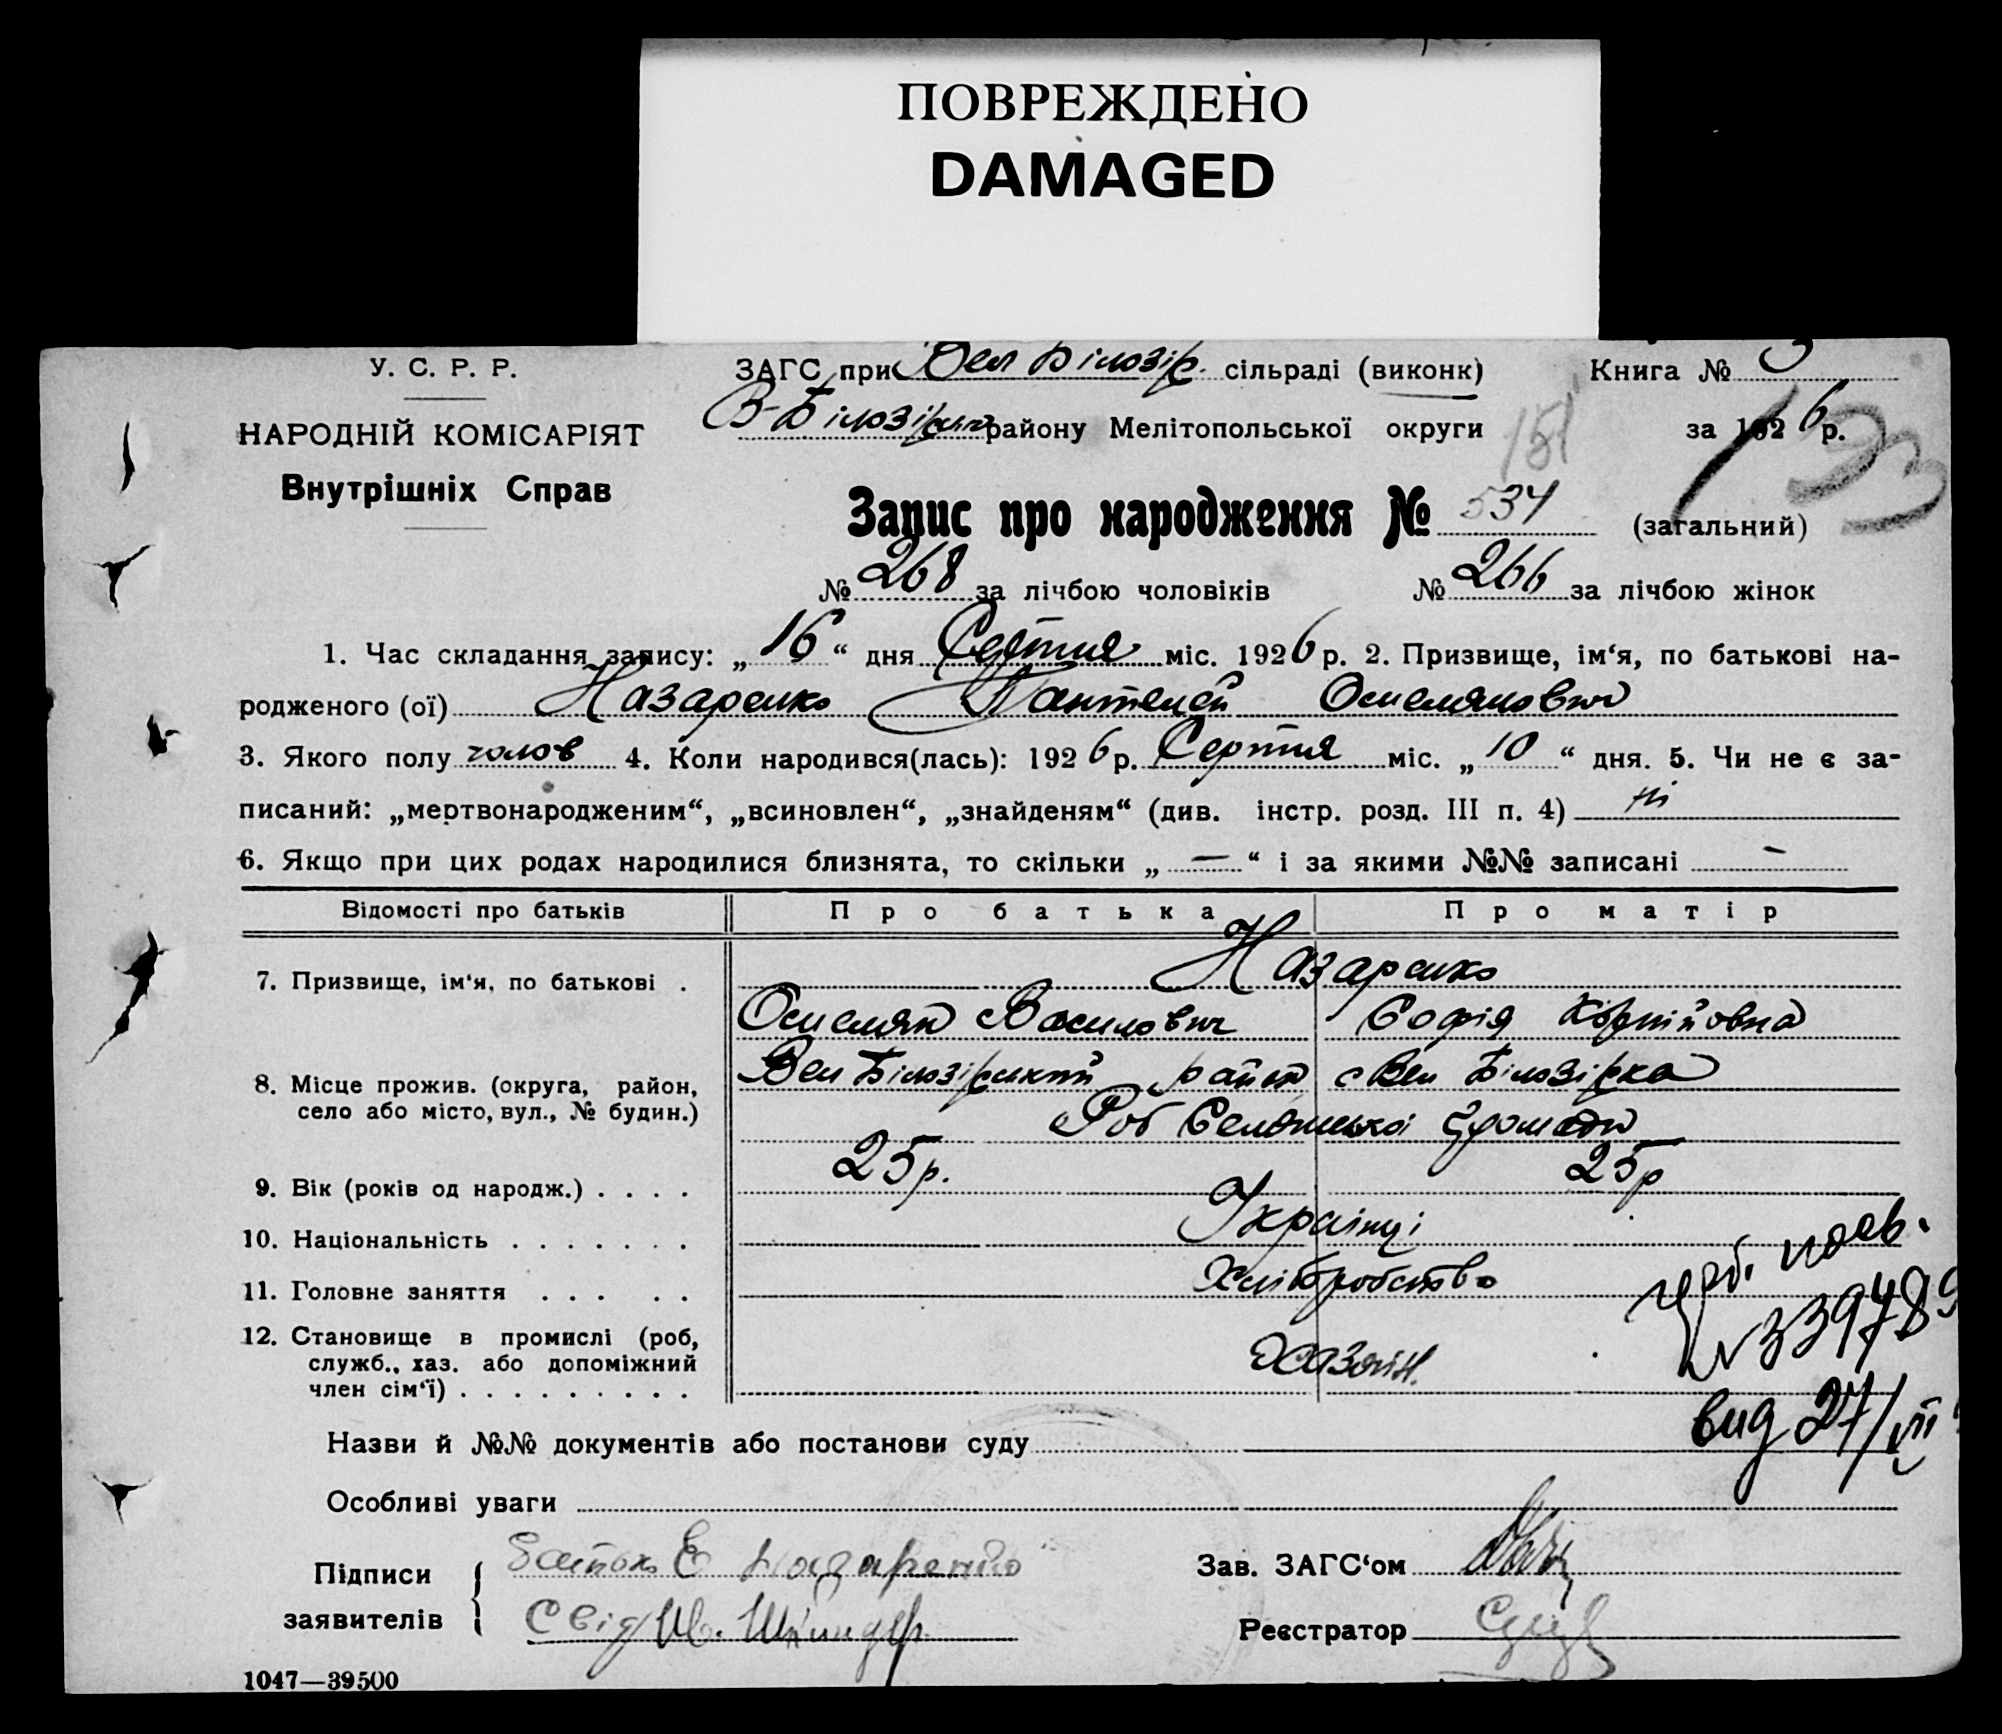 ПОВРЕЖДЕНО
DAMAGED
У. С. Р. Р.
ЗАГС при Вел Білозір. сільраді (виконк) Книга № 3
НАРОДНІЙ КОМІСАРІЯТ
В-Білозірськ району Мелітопольської округи за 1926 р.
Внутрішніх Справ
151 193
Запис про народження № 534 (загальний)
№ 268 за лічбою чоловіків № 266 за лічбою жінок
1. Час складання запису: „ 16 “ дня Серпня міс. 1926 р. 2. Призвище, ім‘я, по батькові на-
родженого (ої) Назаренко Пантелей Омелянович
3. Якого полу чолов 4. Коли народився(лась): 1926 р. Серпня міс. „ 10 “ дня. 5. Чи не є за-
писаний: „мертвонародженим“, „всиновлен“, „знайденям“ (див. інстр. розд. III п. 4) ні
6. Якщо при цих родах народилися близнята, то скільки „ — “ і за якими №№ записані –
Відомості про батьків Про батька Про матір
7. Призвище, ім‘я, по батькові . Назаренко
Омелян Василович Софія Корнійовна
8. Місце прожив. (округа, район, Вел Білозірський район с Вел Білозірка
село або місто, вул., № будин.) Селянської громади
9. Вік (років од народж.) . . . . 25 р. 25 р
10. Національність . . . . . . . Українці
11. Головне заняття . . . . . Хліборобство
12. Становище в промислі (роб,
служб., хаз. або допоміжний хазяїн.
член сім‘ї) . . . . . . . . .
№ 339789
вид 27/VII
Назви й №№ документів або постанови суду
Особливі уваги
Підписи батько Е Назаренко Зав. ЗАГС‘ом
заявителів Свід Реєстратор
1047—39500